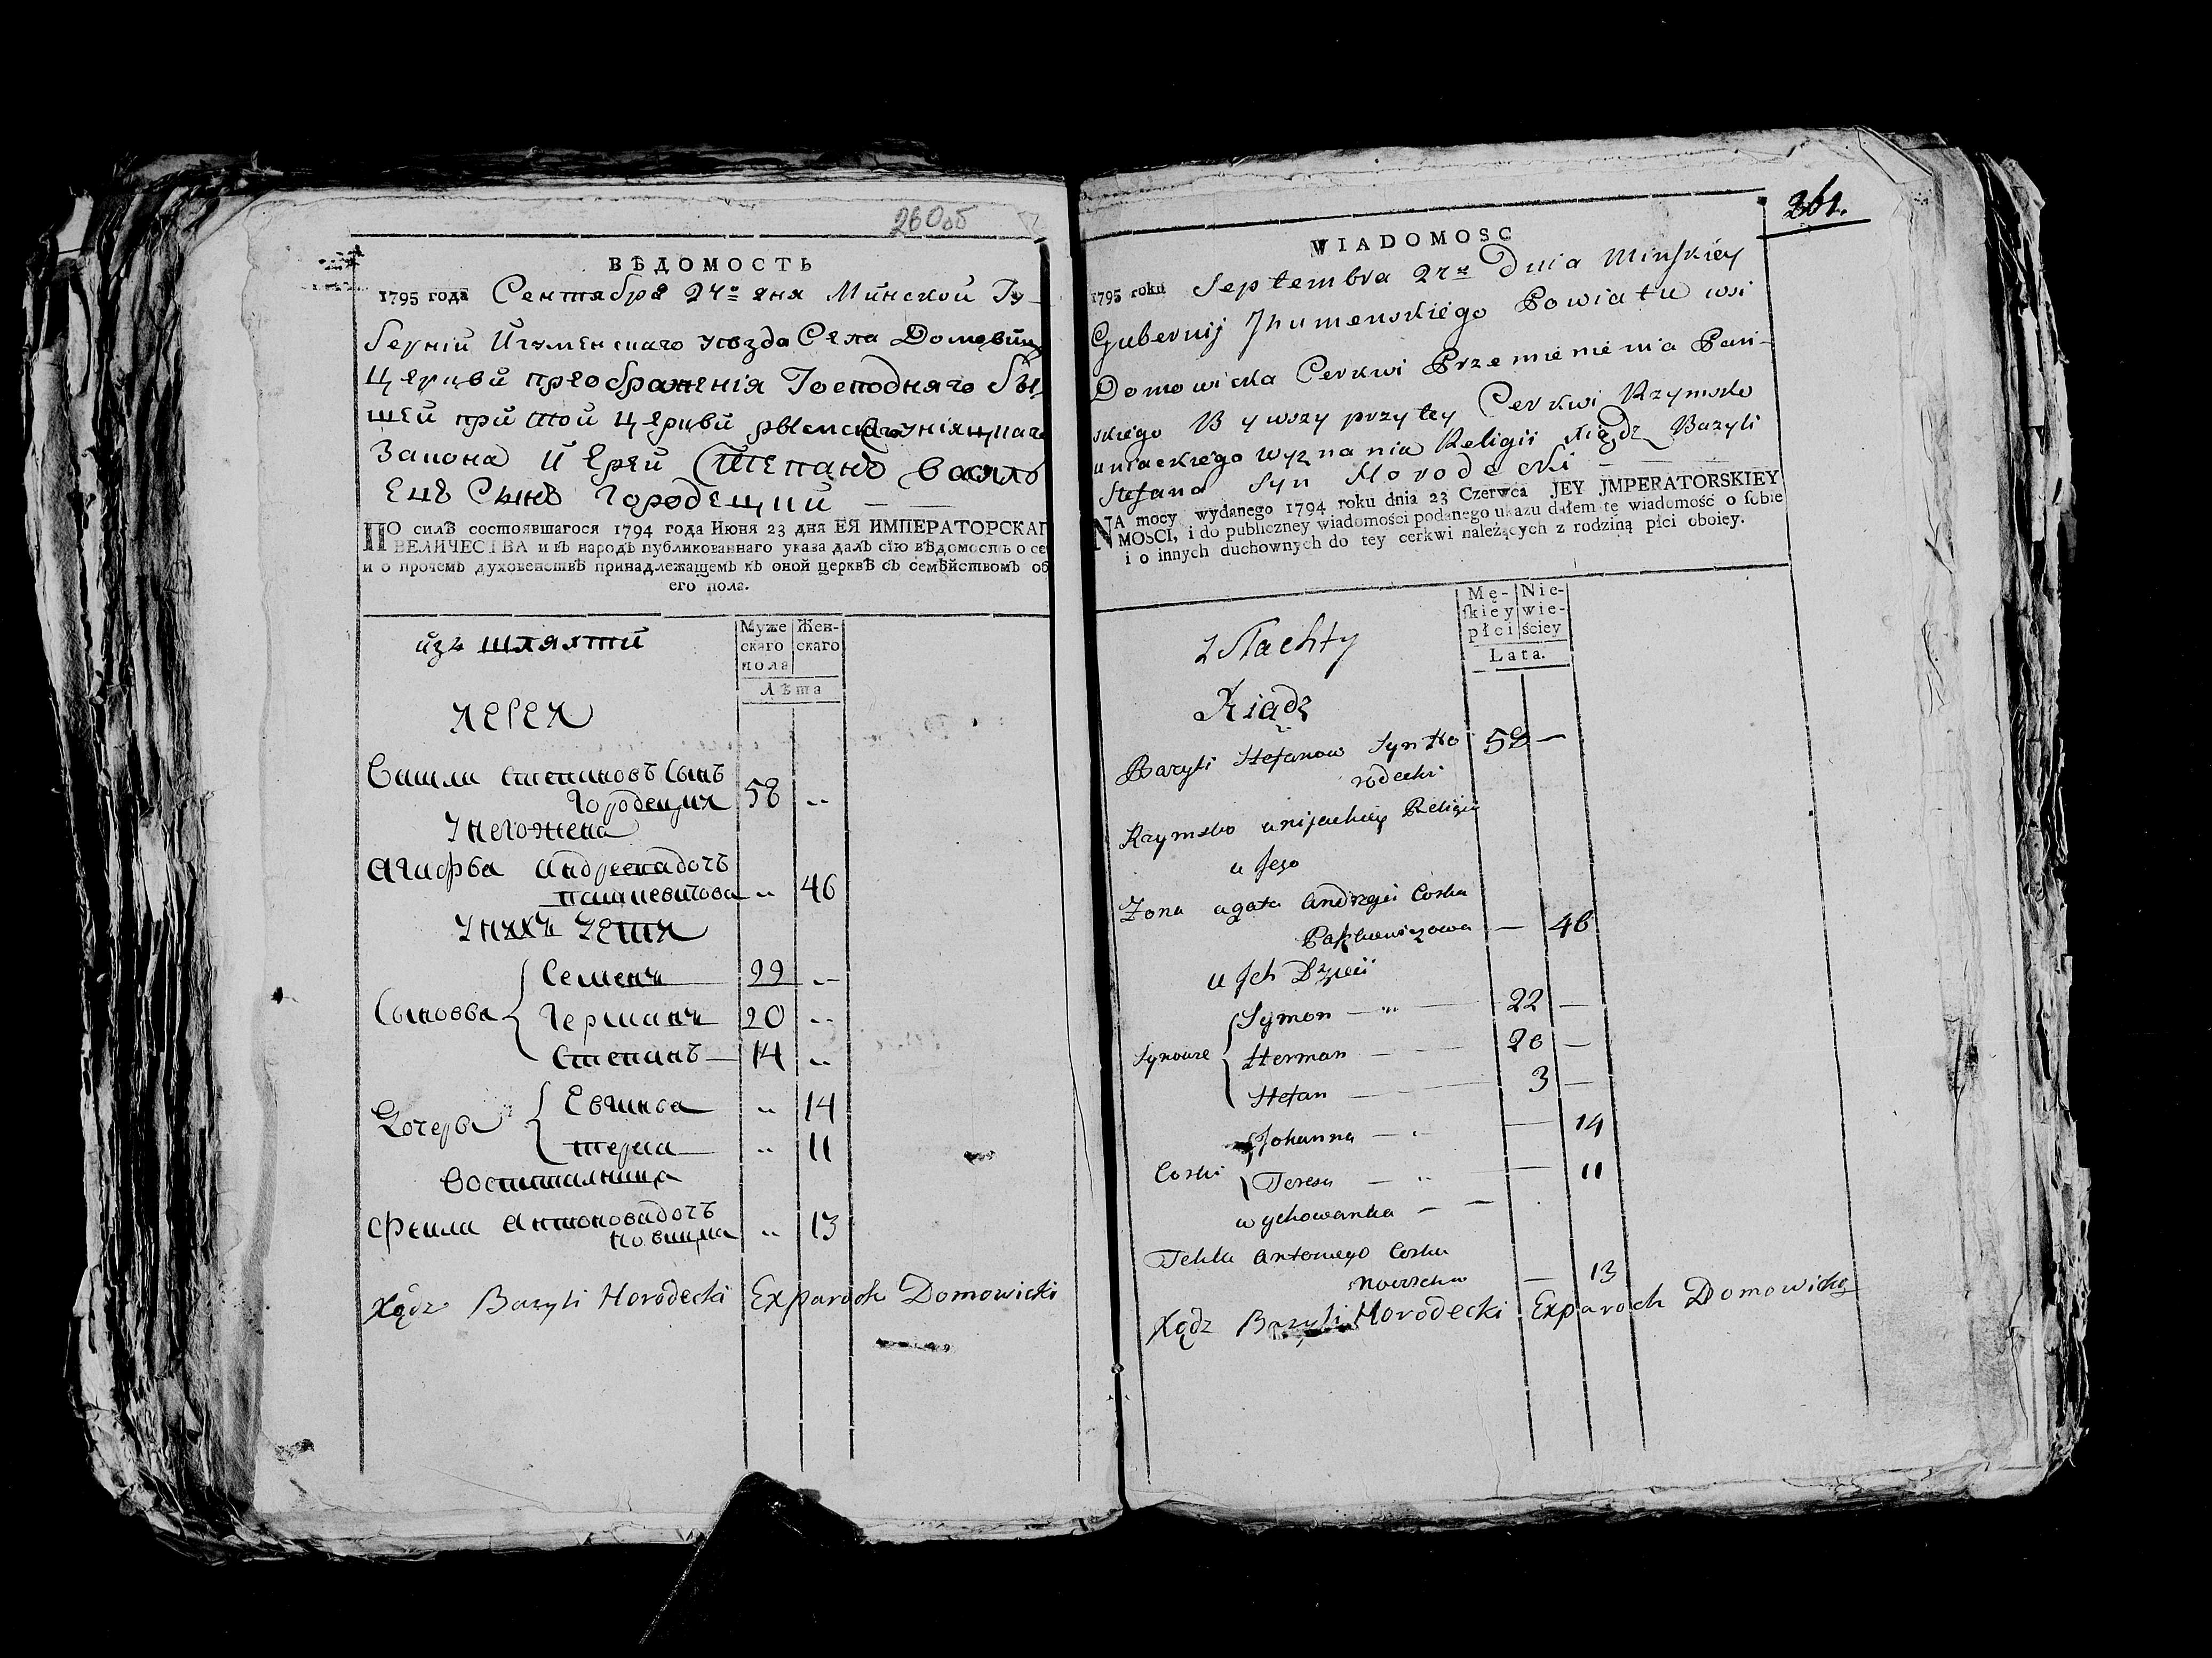 260об
ВѢДОМОСТЬ
1795 года Сентября 24го дня Минской Гу-
берніи Игуменскаго уезда Села Домовицк
Церкви преображенія Господняго бы
шей при той Церкви
Закона Иерей Степанъ
Сынъ Городецкий
ПО силѣ состоявшагося 1794 года Июня 23 дня ЕЯ ИМПЕРАТОРСКАГ
ВЕЛИЧЕСТВА и въ народъ публикованнаго указа далъ сїю вѣдомость о се
и о прочемъ духовенствѣ принадлежащемъ къ оной церквѣ съ семѣйствомъ об
его пола.
изъ шляхти
Муже Жен-
скаго скаго
пола
Лѣта
иереи
Степановъ Сынъ
Городецкии 58 „
У него жена
Агафва Андреевадочъ
„ 46
У нихъ дети
Семенъ 22 „
Сыновва Германъ 20 „
Степанъ 14 „
Дочерва Евгинва „ 14
„ 11
Воспиталница
Антоновадочъ
„ 13
Xądz Bazyli Horodecki Exparoch Domowicki
261.
WIADOMOSC
1795 roku Septembra Dnia Minskiey
Gubernij Jhumenskiégo Powiatu wsi
Domowicka Cerkwi Przemienienia Pan-
skiego Bywszy przy tey Cerkwi Rzymsko
uniackiégo Wyznania Religii Xiądz Bazyli
Stefana Syn Horodecki
NA mocy wydanego 1794 roku dnia 23 Czerwca JEY JMPERATORSKIEY
MOSCI, i do publiczney wiadomości podanego ukazu dałem tę wiadomość o sobie
i o innych duchownych do tey cerkwi należących z rodziną płci oboiey.
z Slachty
Mę- Nie-
skiey wie-
płci ściey
Lata.
Xiądz
Bazyli Stefanow Syn Ho 58 —
rodecki
Rzymsko unijackiey Religii
u Jego
Zona agata Andrzeja Corka
— 46
u Jch Dzieci
Symon — „ — 22 —
Synowie Herman — — 20 —
Stefan — 3 —
Johanna — „ — 14
Corki Teresa — „ — 11
wychowanka — —
Tekla Antoniego Corka
— 13
Xądz Bazyli Horodecki Exparoch Domowicki